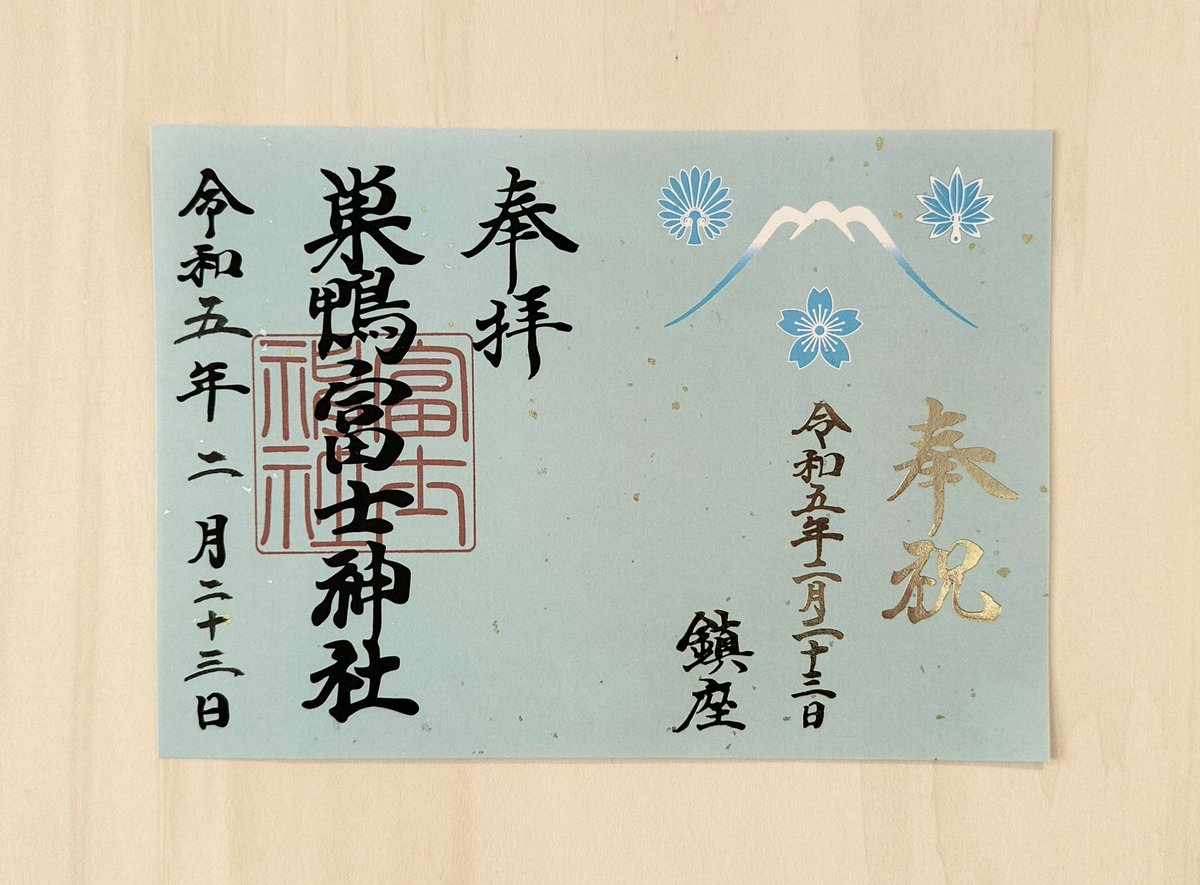 奉祝
令和五年二月二十三日
鎮座
奉拝
巣鴨富士神社
富士
福社
令和五年二月二十三日